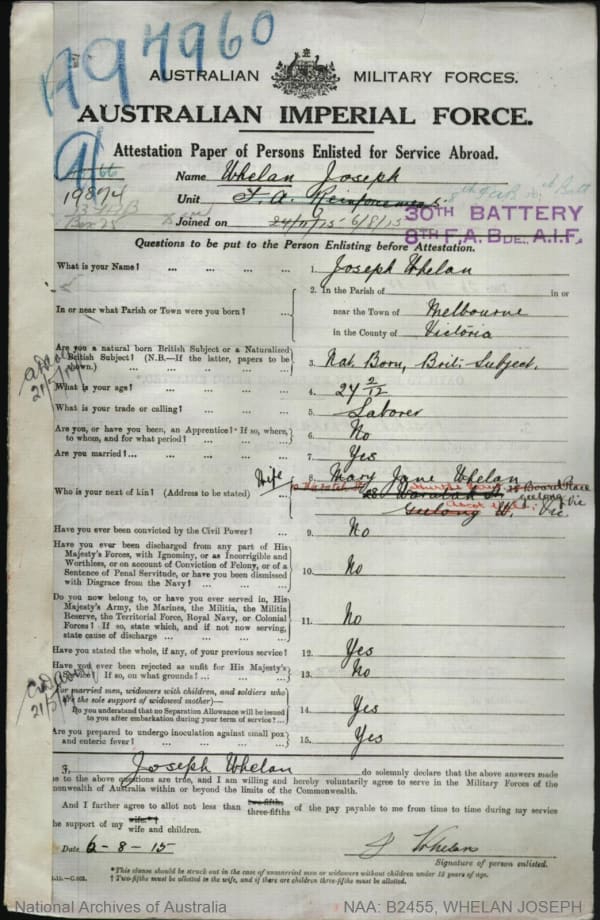 A97960
AUSTRALIAN MILITARY FORCES.
AUSTRALIAN IMPERIAL FORCE.
Attestation Paper of Persons Enlisted for Service Abroad.
19874
Name Whelan Joseph
Unit F.A. Reinforcements
Joined on 24/11/15 6/8/15
30TH BATTERY
8TH F.A. BDE. A.I.F.
Questions to be put to the Person Enlisting before Attestation.
What is your Name? ... ... ... ... 1. Joseph Whelan
2. In the Parish of in or
In or near what Parish or Town were you born? ... near the Town of Melbourne
in the County of Victoria
Are you a natural born British Subject or a Naturalized
British Subject? (N.B.—If the latter, papers to be
shown.) ... ... ... ... 3. Nat. Born, Brit: Subject.
What is your age? ... ... ... ... 4. 24 2/12
What is your trade or calling? ... ... ... 5. Laborer
Are you, or have you been, an Apprentice? If so, where,
to whom, and for what period? ... ... ... 6. No
Are you married? ... ... ... ... 7. Yes
Wife
8. Mary Jane Whelan
Who is your next of kin? (Address to be stated) ...
Geelong W. Vic
Have you ever been convicted by the Civil Power? ... 9. No
Have you ever been discharged from any part of His
Majesty's Forces, with Ignominy, or as Incorrigible and
Worthless, or on account of Conviction of Felony, or of a
Sentence of Penal Servitude, or have you been dismissed
with Disgrace from the Navy? ... ... 10. No
Do you now belong to, or have you ever served in, His
Majesty's Army, the Marines, the Militia, the Militia
Reserve, the Territorial Force, Royal Navy, or Colonial
Forces? If so, state which, and if not now serving,
state cause of discharge ... ... ... 11. No
Have you stated the whole, if any, of your previous service? 12. Yes
Have you ever been rejected as unfit for His Majesty's
Service? If so, on what grounds? ... ... 13. No
(For married men, widowers with children, and soldiers who
are the sole support of widowed mother)—
Do you understand that no Separation Allowance will be issued
to you after embarkation during your term of service? ... 14. Yes
Are you prepared to undergo inoculation against small pox
and enteric fever? ... ... ... 15. Yes
I, Joseph Whelan do solemnly declare that the above answers made
me to the above questions are true, and I am willing and hereby voluntarily agree to serve in the Military Forces of the
monwealth of Australia within or beyond the limits of the Commonwealth.
And I further agree to allot not less than two-fifths three-fifths of the pay payable to me from time to time during my service
the support of my wife* † wife and children.
Date 6-8-15 J Whelan
Signature of person enlisted.
*This clause should be struck out in the case of unmarried men or widowers without children under 18 years of age.
†Two-fifths must be allotted to the wife, and if there are children three-fifths must be allotted.
National Archives of Australia NAA: B2455, WHELAN JOSEPH